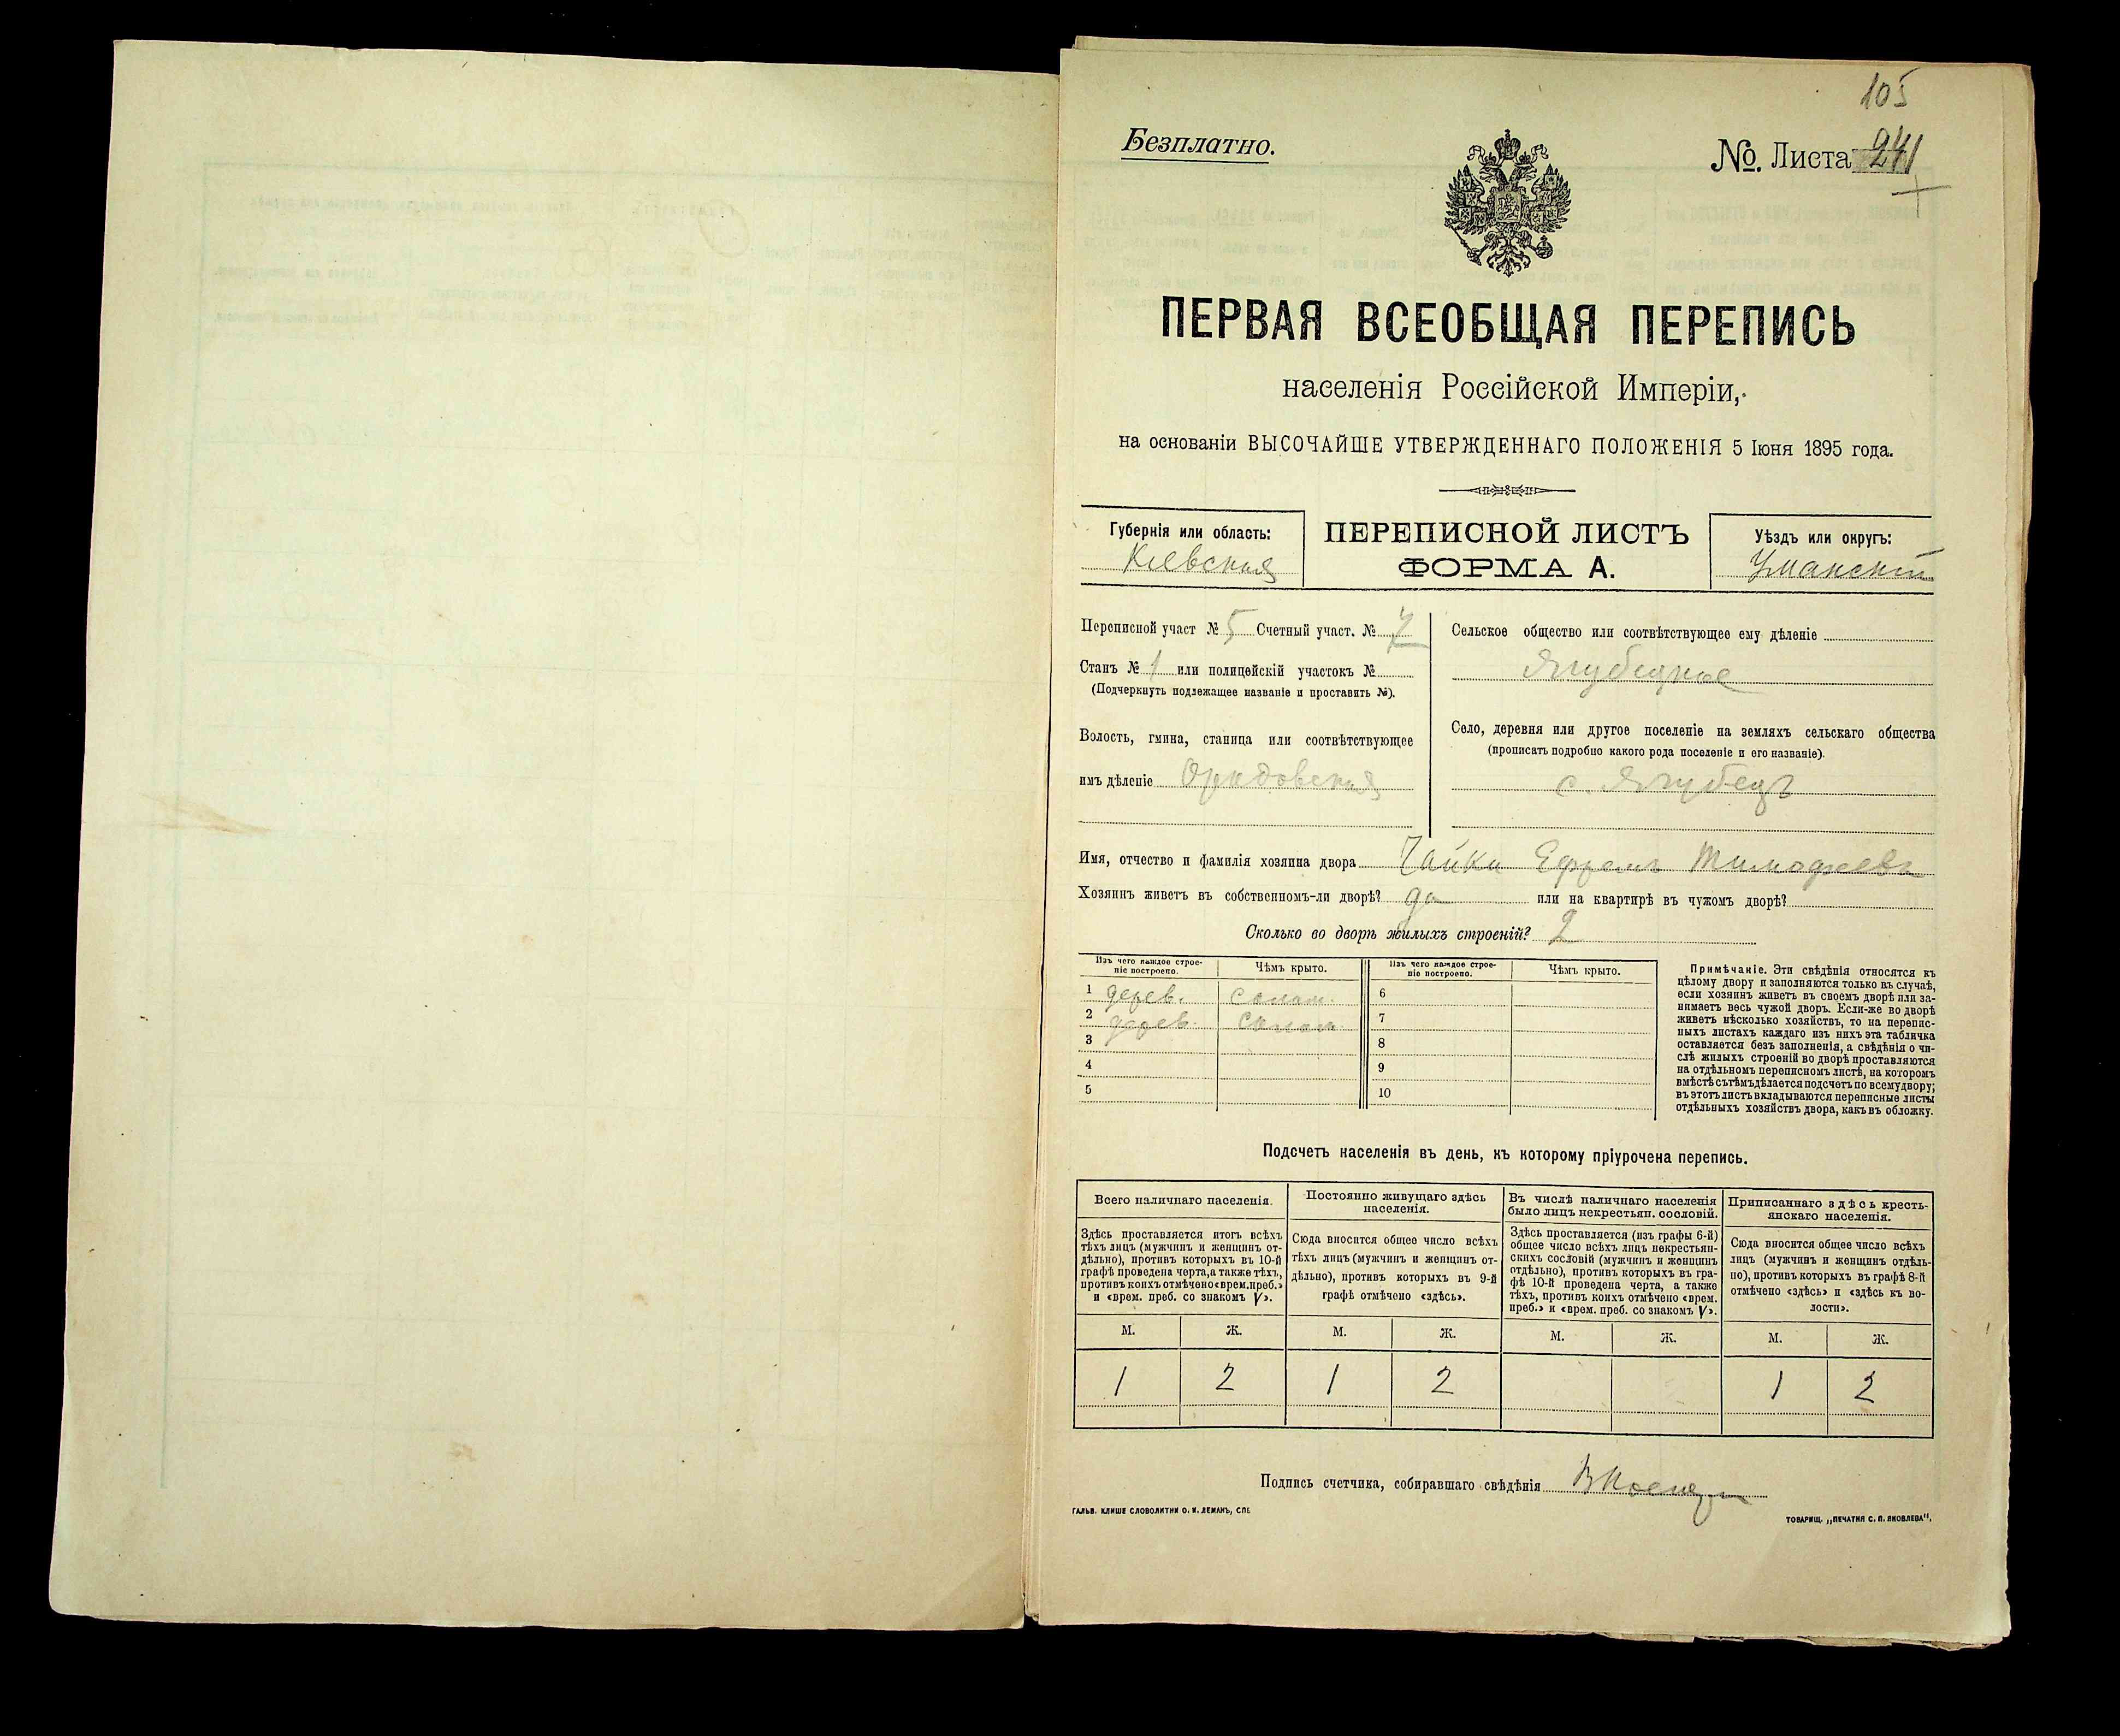 105
Безплатно.
№ Листа 241
ПЕРВАЯ ВСЕОБЩАЯ ПЕРЕПИСЬ
населенія Россійской Имперіи,
на основаніи ВЫСОЧАЙШЕ УТВЕРЖДЕННАГО ПОЛОЖЕНІЯ 5 Іюня 1895 года.
Губернія или область:
Кіевская
ПЕРЕПИСНОЙ ЛИСТЪ
ФОРМА А.
Уѣздъ или округъ:
Уманскій
Переписной участ № 5 Счетный участ. № 7
Станъ № 1 или полицейскій участокъ №
(Подчеркнуть подлежащее названіе и проставить №).
Волость, гмина, станица или соотвѣтствующее
имъ дѣленіе
Сельское общество или соотвѣтствующее ему дѣленіе
Ягубецкое
Село, деревня или другое поселеніе на земляхъ сельскаго общества
(прописать подробно какого рода поселеніе и его названіе).
с. Ягубецъ
Имя, отчество и фамилія хозяина двора Чайки Ефремъ Тимофеевъ
Хозяинъ живетъ въ собственномъ-ли дворѣ? да или на квартирѣ въ чужомъ дворѣ?
Сколько во дворѣ жилыхъ строеній? 2
Изъ чего каждое строе-
ніе построено.
Чѣмъ крыто.
Изъ чего каждое строе-
ніе построено.
Чѣмъ крыто.
1 дерев. солом.
2 дерев. солом
3
4
5
6
7
8
9
10
Примѣчаніе. Эти свѣдѣнія относятся къ
цѣлому двору и заполняются только въ случаѣ,
если хозяинъ живетъ въ своемъ дворѣ или за-
нимаетъ весь чужой дворъ. Если-же во дворѣ
живетъ нѣсколько хозяйствъ, то на перепис-
ныхъ листахъ каждаго изъ нихъ эта табличка
оставляется безъ заполненія, а свѣдѣнія о чи-
слѣ жилыхъ строеній во дворѣ проставляются
на отдѣльномъ переписномъ листѣ, на которомъ
вмѣстѣ съ тѣмъ дѣлается подсчетъ по всему двору;
въ этотъ листъ вкладываются переписные листы
отдѣльныхъ хозяйствъ двора, какъ въ обложку.
Подсчетъ населенія въ день, къ которому пріурочена перепись.
Всего наличнаго населенія.
Здѣсь проставляется итогъ всѣхъ
тѣхъ лицъ (мужчинъ и женщинъ от-
дѣльно), противъ которыхъ въ 10-й
графѣ проведена черта, а также тѣхъ,
противъ коихъ отмѣчено «врем. преб.»
и «врем. преб. со знакомъ V».
Постоянно живущаго здѣсь
населенія.
Сюда вносится общее число всѣхъ
тѣхъ лицъ (мужчинъ и женщинъ от-
дѣльно), противъ которыхъ въ 9-й
графѣ отмѣчено «здѣсь».
Въ числѣ наличнаго населенія
было лицъ некрестьян. сословій.
Здѣсь проставляется (изъ графы 6-й)
общее число всѣхъ лицъ некрестьян-
скихъ сословій (мужчинъ и женщинъ
отдѣльно), противъ которыхъ въ гра-
фѣ 10-й проведена черта, а также
тѣхъ, противъ коихъ отмѣчено «врем.
преб.» и «врем. преб. со знакомъ V».
Приписаннаго здѣсь кресть-
янскаго населенія.
Сюда вносится общее число всѣхъ
лицъ (мужчинъ и женщинъ отдѣль-
но), противъ которыхъ въ графѣ 8-й
отмѣчено «здѣсь» и «здѣсь къ во-
лости».
М. Ж. М. Ж. М. Ж. М. Ж.
1 2 1 2 1 2
Подпись счетчика, собиравшаго свѣдѣнія
ГАЛЬВ. КЛИШЕ СЛОВОЛИТНИ О. И. ЛЕМАНЪ, СПБ.
ТОВАРИЩ. „ПЕЧАТНЯ С. П. ЯКОВЛЕВА".